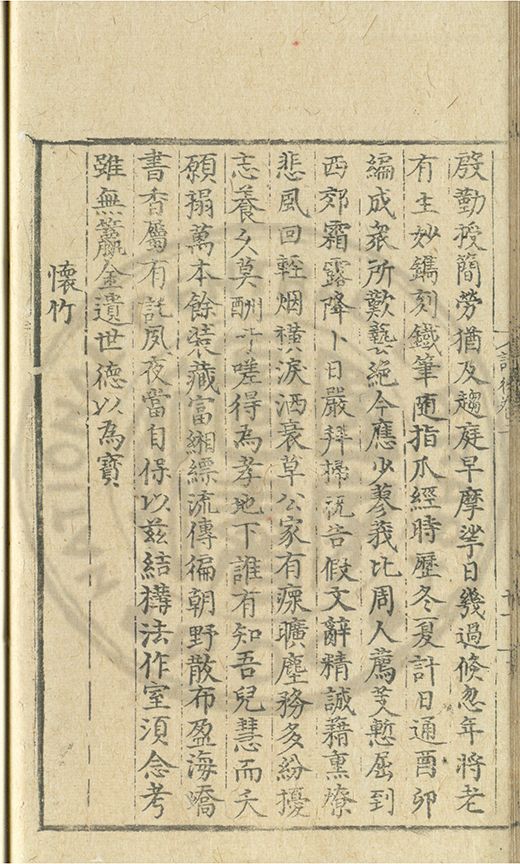 啟勤授簡勞猶及趨庭早摩挲日幾過倏忽年將老
有生妙鐫刻鐵筆隨指爪經時歷冬夏許日通酉卯
編成衆所歎藝絕今應少蓼莪比周人薦芰慙屈到
西郊霜露降卜日嚴拜掃說告假文辭精誠藉熏燎
悲風回輕烟橫淚洒衰草公家有㾕曠塵務多紛擾
志養久莫酬于嗟得為孝地下誰有知吾兒慧而夭
願搨萬本餘裝藏富緗縹流傳徧朝野散布盈海嶠
書香屬有託夙夜當自保以茲結構法作室須念考
雖無籯金遺世德以為寶
懷竹